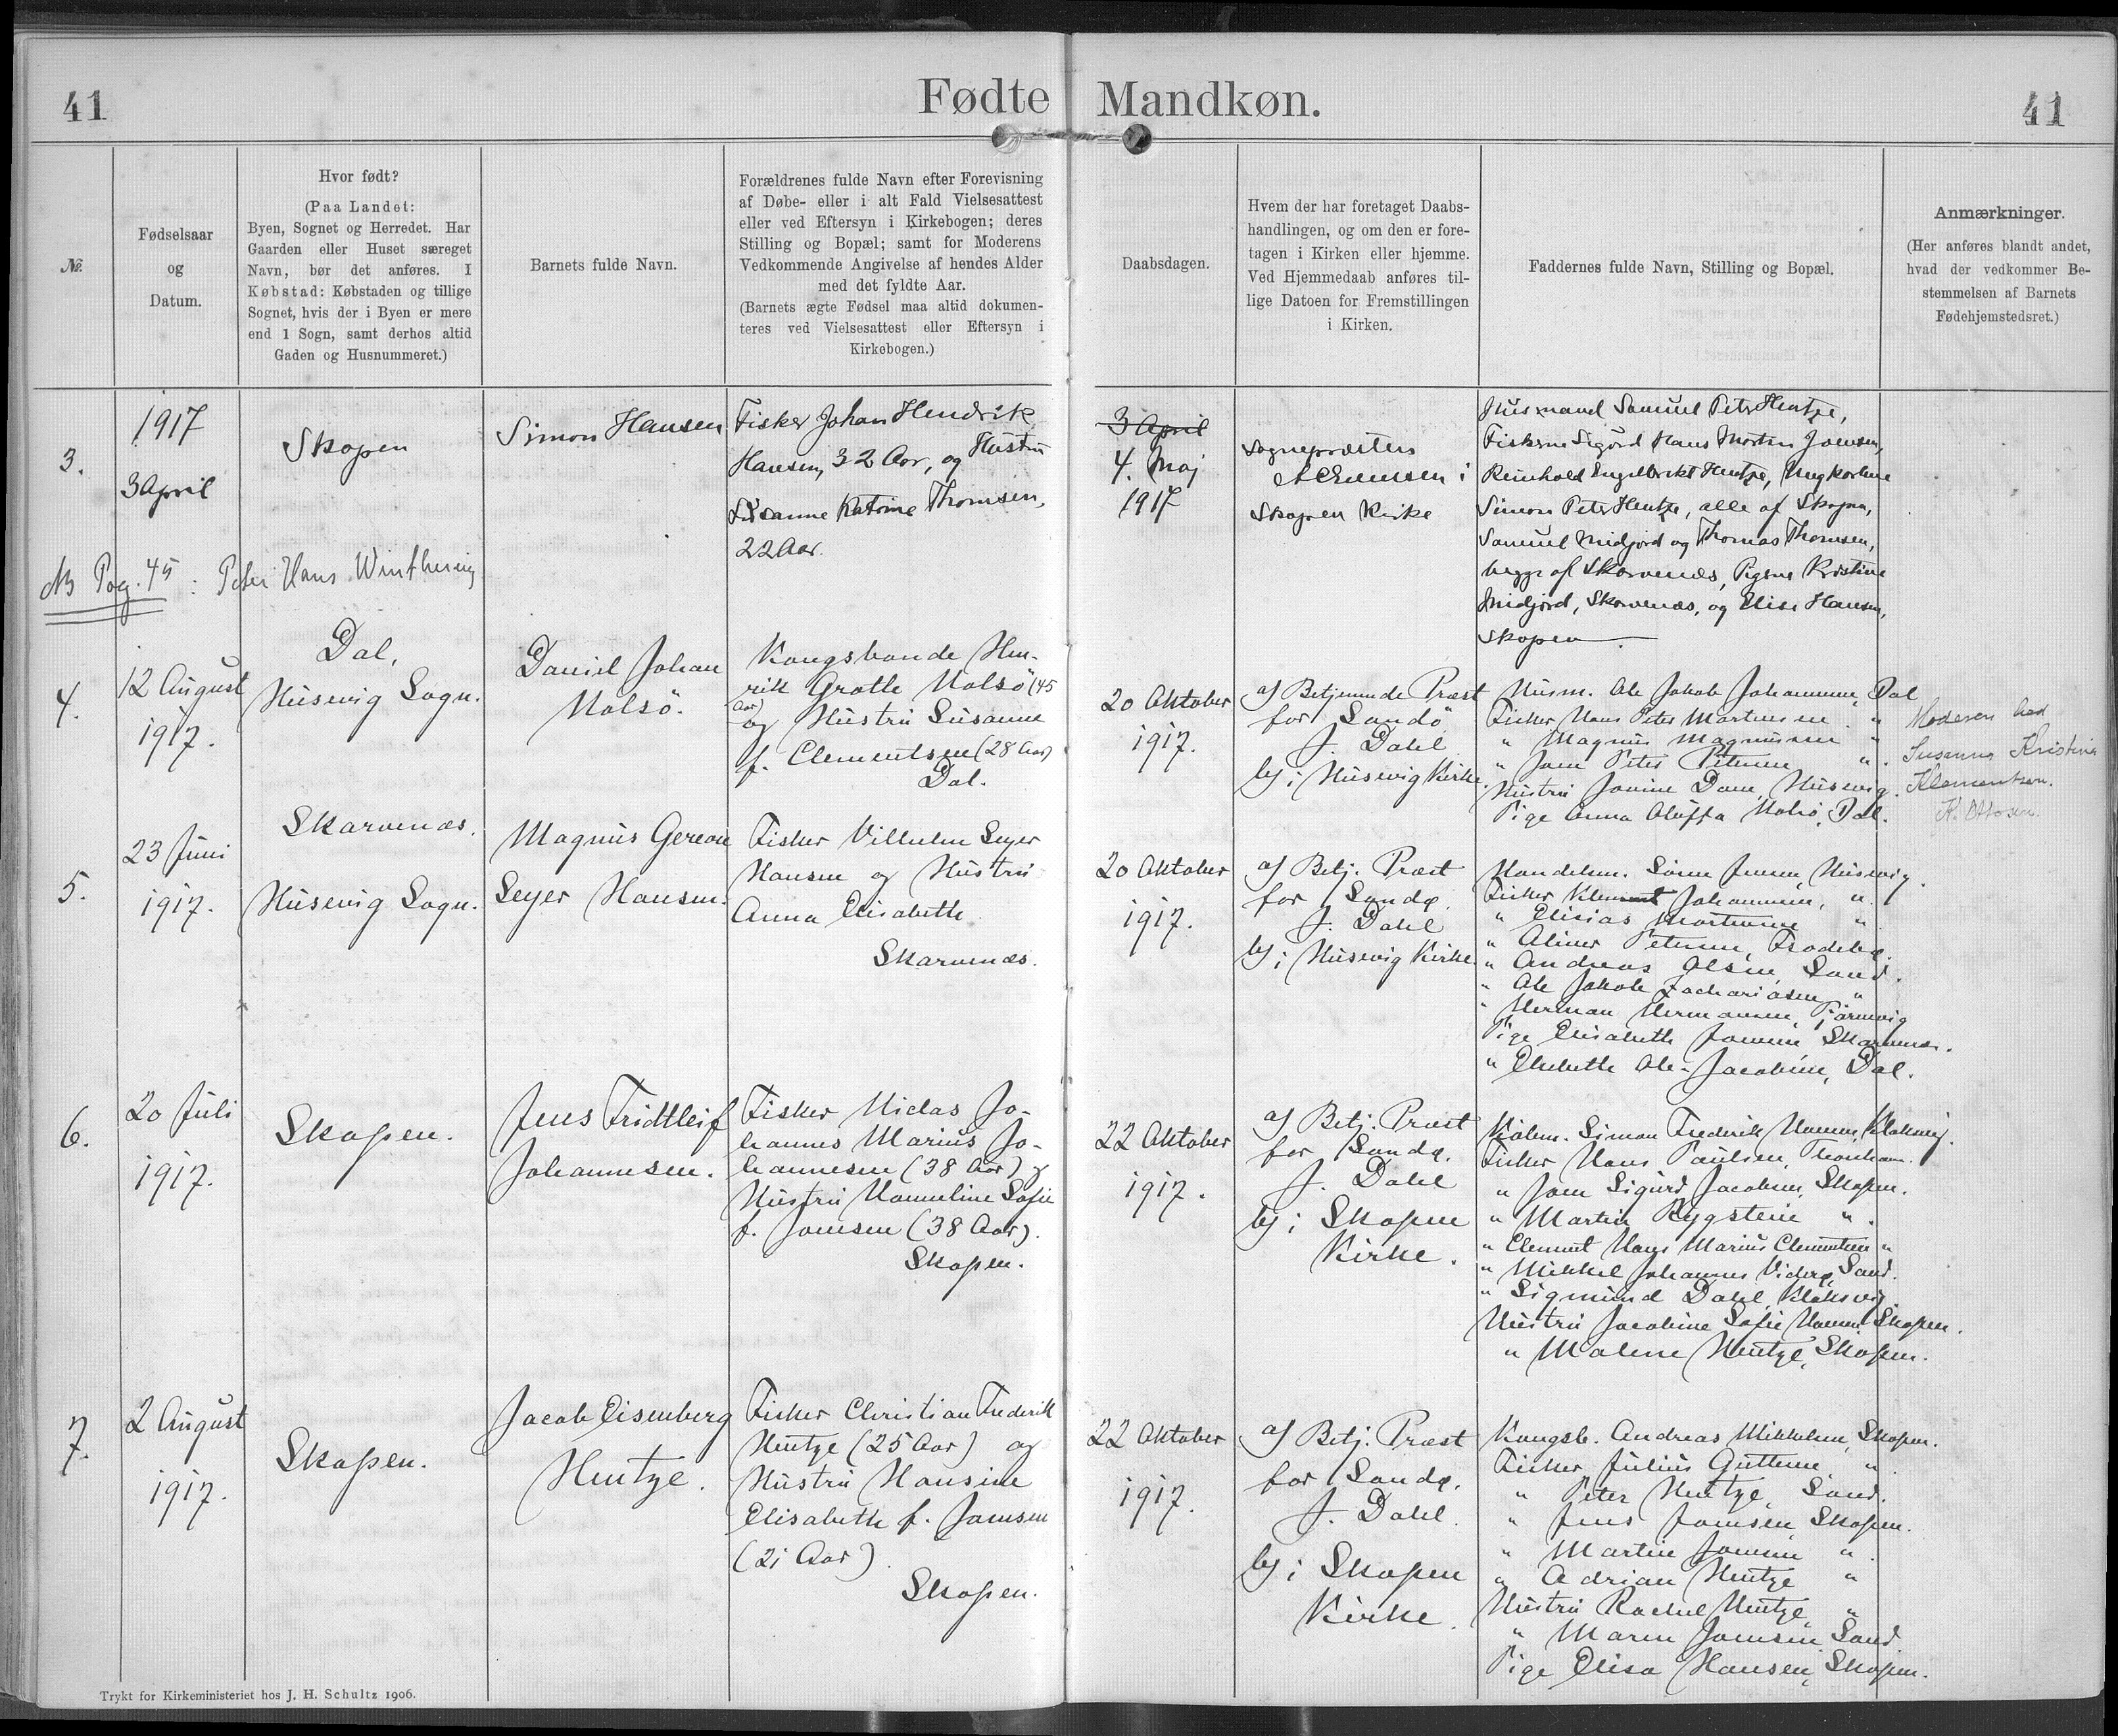 41
Fødte Mandkøn.
41
№
Fødselsaar
og
Datum.
Hvor født?
(Paa Landet:
Byen, Sognet og Herredet. Har
Gaarden eller Huset særeget
Navn, bør det anføres. I
Købstad: Købstaden og tillige
Sognet, hvis der i Byen er mere
end 1 Sogn, samt derhos altid
Gaden og Husnummeret.)
Barnets fulde Navn.
Forældrenes fulde Navn efter Forevisning
af Døbe- eller i alt Fald Vielsesattest
eller ved Eftersyn i Kirkebogen; deres
Stilling og Bopæl; samt for Moderens
Vedkommende Angivelse af hendes Alder
med det fyldte Aar.
(Barnets ægte Fødsel maa altid dokumen-
teres ved Vielsesattest eller Eftersyn i
Kirkebogen.)
Daabsdagen.
Hvem der har foretaget Daabs-
handlingen, og om den er fore-
tagen i Kirken eller hjemme.
Ved Hjemmedaab anføres til-
lige Datoen for Fremstillingen
i Kirken.
Faddernes fulde Navn, Stilling og Bopæl.
Anmærkninger.
(Her anføres blandt andet,
hvad der vedkommer Be-
stemmelsen af Barnets
Fødehjemstedsret.)
3.
1917
3 April
Skopen
Simon Hansen
Fisker Johan Hendrik
Hansen, 32 Aar, og Hustru
Susanne Katrine Thomsen,
22 Aar.
3 April
4. Maj
1917
Sognepræsten
i
Skopen Kirke
Husmand Samuel Peter Hentze,
Fiskerne Sigurd Hans Morten Joensen,
Reinhold Engelbrekt Hentze, Ungkarlene
Simon Peter Hentze, alle af Skopen,
Samuel Midjord og Thomas Thomsen,
begge af Skarvenæs, Pigerne Kristine
Midjord, Skarvenæs, og Elise Hansen,
Skopen
NB Pag. 45 : Peter Hans Winthereig
4.
12 August
1917.
Dal,
Húsevig Sogn.
Daniel Johan
Nolsö.
Kongsbonde Hen-
rik Grotle Nolsö (45
Aar)
og Hústrú Susanne
f. Clementsen (28 Aar)
Dal.
20 Oktober
1917.
af Betjenende Præst
for Sandö
J. Dahl
og i Húsevig Kirke.
Husm. Ole Jakob Johannesen, Dal
Fisker Hans Peter Martensen "
" Magnus Magnussen "
" Joen Peter Petersen "
Hústrú Jovine Dam, Húsevig.
Pige Anna Oluffa Nolsö, Dal.
Moderen hed
Susanna Kristina
Klementsen.
K. Ottosen.
5.
23 Juni
1917.
Skarvenæs.
Húsevig Sogn.
Magnús Gereon
Sejer Hansen.
Fisker Vilhelm Sejer
Hansen og Hústrú
Anna Elisabeth
Skarvenæs.
20 Oktober
1917.
af Betj. Præst
for Sandø.
J. Dahl
og i Húsevig Kirke.
Handelsm. Sörin Jensen, Húsevig.
Fisker Klement Johannesen, "
" Elisias Mortensen "
" Petersen, Frodebø.
" Andreas Olsen, Sand.
" Ole Jakob Zachariasen "
" Herman Hermansen,
Pige Elisabeth Joensen Skarvenæs.
" Elsebeth Ole-Jacobine, Dal.
6.
20 Juli
1917.
Skopen.
Jens Fridtleif
Johannesen.
Fisker Niclas Jo-
hannes Marius Jo-
hannesen (38 Aar) og
Hústrú Hanneline Sofie
f. Joensen (38 Aar).
Skopen.
22 Oktober
1917.
af Betj. Præst
for Sandø.
J. Dahl
og i Skopen
Kirke.
Købm. Simon Frederik Hansen, Klaksvig.
Fisker Hans Paulsen, Thorshavn.
" Joen Sigurd Jacobsen, Skopen.
" Martin Rygsteine "
" Clement Hans Marius Clementsen "
" Mikkel Johannes Viderø, Sand.
" Sigmund Dahl, Klaksvig
Hústrú Jacobine Sofie Hansen Skopen.
" Malene Hentze, Skopen.
7.
2 August
1917.
Skopen.
Jacob Eisenberg
Hentze.
Fisker Christian Frederik
Hentze (25 Aar) og
Hústrú Hansine
Elisabeth f. Joensen
(21 Aar).
Skopen.
22 Oktober
1917.
af Betj. Præst
for Sandø.
J. Dahl.
og i Skopen
Kirke.
Kongsb. Andreas Mikkelsen, Skopen.
Fisker Július Guttesen "
" Peter Hentze, Sand.
" Jens Joensen, Skopen.
" Martin Joensen "
" Adrian Hentze "
Hústrú Rachel Hentze, "
" Maren Joensen, Sand.
Pige Elisa Hansen, Skopen.
Trykt for Kirkeministeriet hos J. H. Schultz 1906.